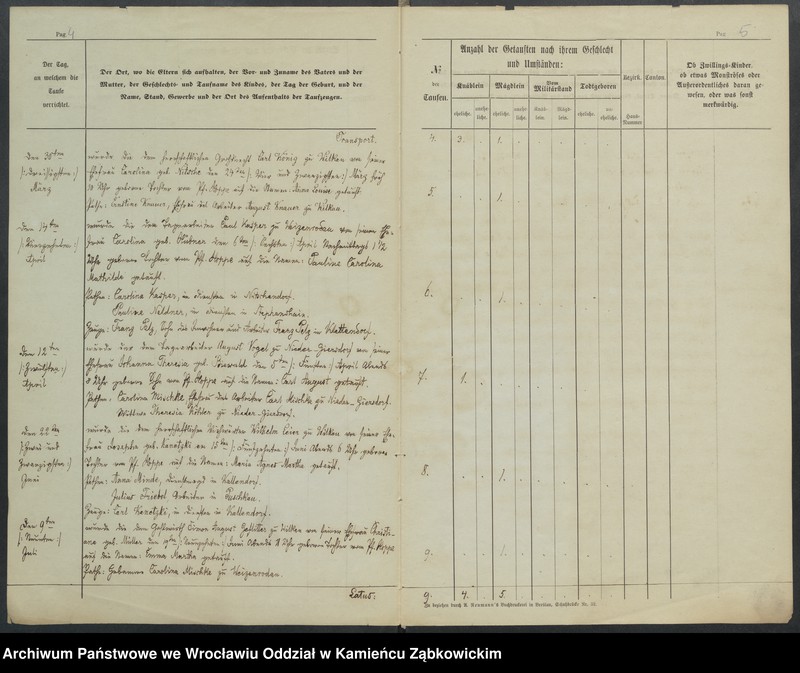 Pag 4
Der Tag,
an welchem die
Taufe
verrichtet.
Der Ort, wo die Eltern sich aufhalten, der Vor- und Zuname des Vaters und der
Mutter, der Geschlechts- und Taufname des Kindes, der Tag der Geburt, und der
Name, Stand, Gewerbe und der Ort des Aufenthalts der Taufzeugen.
Transport.
den 30ten
März
wurde die dem herrschaftlichen Carl König zu Wilkau von seiner
Ehefrau Carolina geb. Nitsche den 24ten /: Vier und Zwanzigsten :/ März früh
10 Uhr geborne Tochter von Pf. Hoppe auf die Namen: Anna Louise getauft.
Ehefrau des Arbeiter August zu Wilkau.
den 14ten
/: Vierzehnten :/
April
wurde die dem Tagearbeiter Carl Kasper zu Weizenrodau von seiner Ehe-
frau Carolina geb. Hübner den 6ten /: Sechsten :/ April Nachmittags 1 1/2
Uhr geborne Tochter vom Pf. Hoppe auf die Namen: Paulina Carolina
Mathilda getauft.
Pathen: Carolina Kasper, in Diensten in Nitschendorf.
Pauline Neldner, in Diensten in
Zeuge: Franz Pelz, Sohn des und Arbeiter Franz Pelz in Klettendorf.
den 12ten
/: Zwölften :/
April
wurde der dem Tagearbeiter August Vogel zu Nieder-Giersdorf von seiner
Ehefrau Johanna Theresia geb. den 5ten /: Fünften :/ April Abends
8 Uhr geborne Sohn von Pf. Hoppe auf die Namen: Carl August getauft.
Pathen: Carolina Mischke, Ehefrau des Arbeiter Carl Mischke zu Nieder-Giersdorf.
Wittwe Theresia Köhler zu Nieder-Giersdorf.
den 22ten
/: Zwei und
Zwanzigsten :/
Juni
wurde die dem herrschaftlichen Wilhelm zu Wilkau von seiner Ehe-
frau Josepha geb. Kanotzki am 15ten /: Fünfzehnten :/ Juni Abends 6 Uhr geborne
Tochter von Pf. Hoppe auf die Namen: Maria Agnes Martha getauft.
Pathen: Anna Minde, Dienstmagd in Kallendorf.
Julius Arbeiter in Puschkau.
Zeuge: Carl Kanotzki, in Diensten in Kallendorf.
den 9ten
/: Neunten :/
Juli
wurde die dem August zu Wilkau von seiner Ehefrau Christi-
ana geb. Müller den 19ten /: Neunzehnten :/ Juni Abends Uhr geborne Tochter vom Pf. Hoppe
auf die Namen: Emma Martha getauft.
Path: Hebamme Carolina Mischke zu Weizenrodau.
Latus:
Pag 5
№
der
Taufen.
Anzahl der Getauften nach ihrem Geschlecht
und Umständen:
Knäblein
Mägdlein
Vom
Militärstand
Todtgeboren
eheliche.
unehe
liche.
eheliche.
unehe
liche.
Knäb-
lein.
Mägd-
lein.
eheliche.
un-
eheliche.
Bezirk.
Canton.
Haus-
Nummer
Ob Zwillings-Kinder,
ob etwas Monströses oder
Außerordentliches daran ge-
wesen, oder was sonst
merkwürdig.
4. 3. 1.
5. 1.
6. 1.
7. 1.
8. 1.
9. 1.
9. 4. 5.
Zu beziehen durch R. Neumann's Buchdruckerei in Breslau, Schuhbrücke Nr. 32.
Archiwum Państwowe we Wrocławiu Oddział w Kamieńcu Ząbkowickim